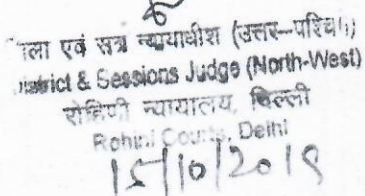 ला एवं सत्र न्यायाधीश (उत्तर–पश्चिम)
District & Sessions Judge (North-West)
रोहिणी न्यायालय, दिल्ली
Rohini Courts, Delhi
15/10/2019